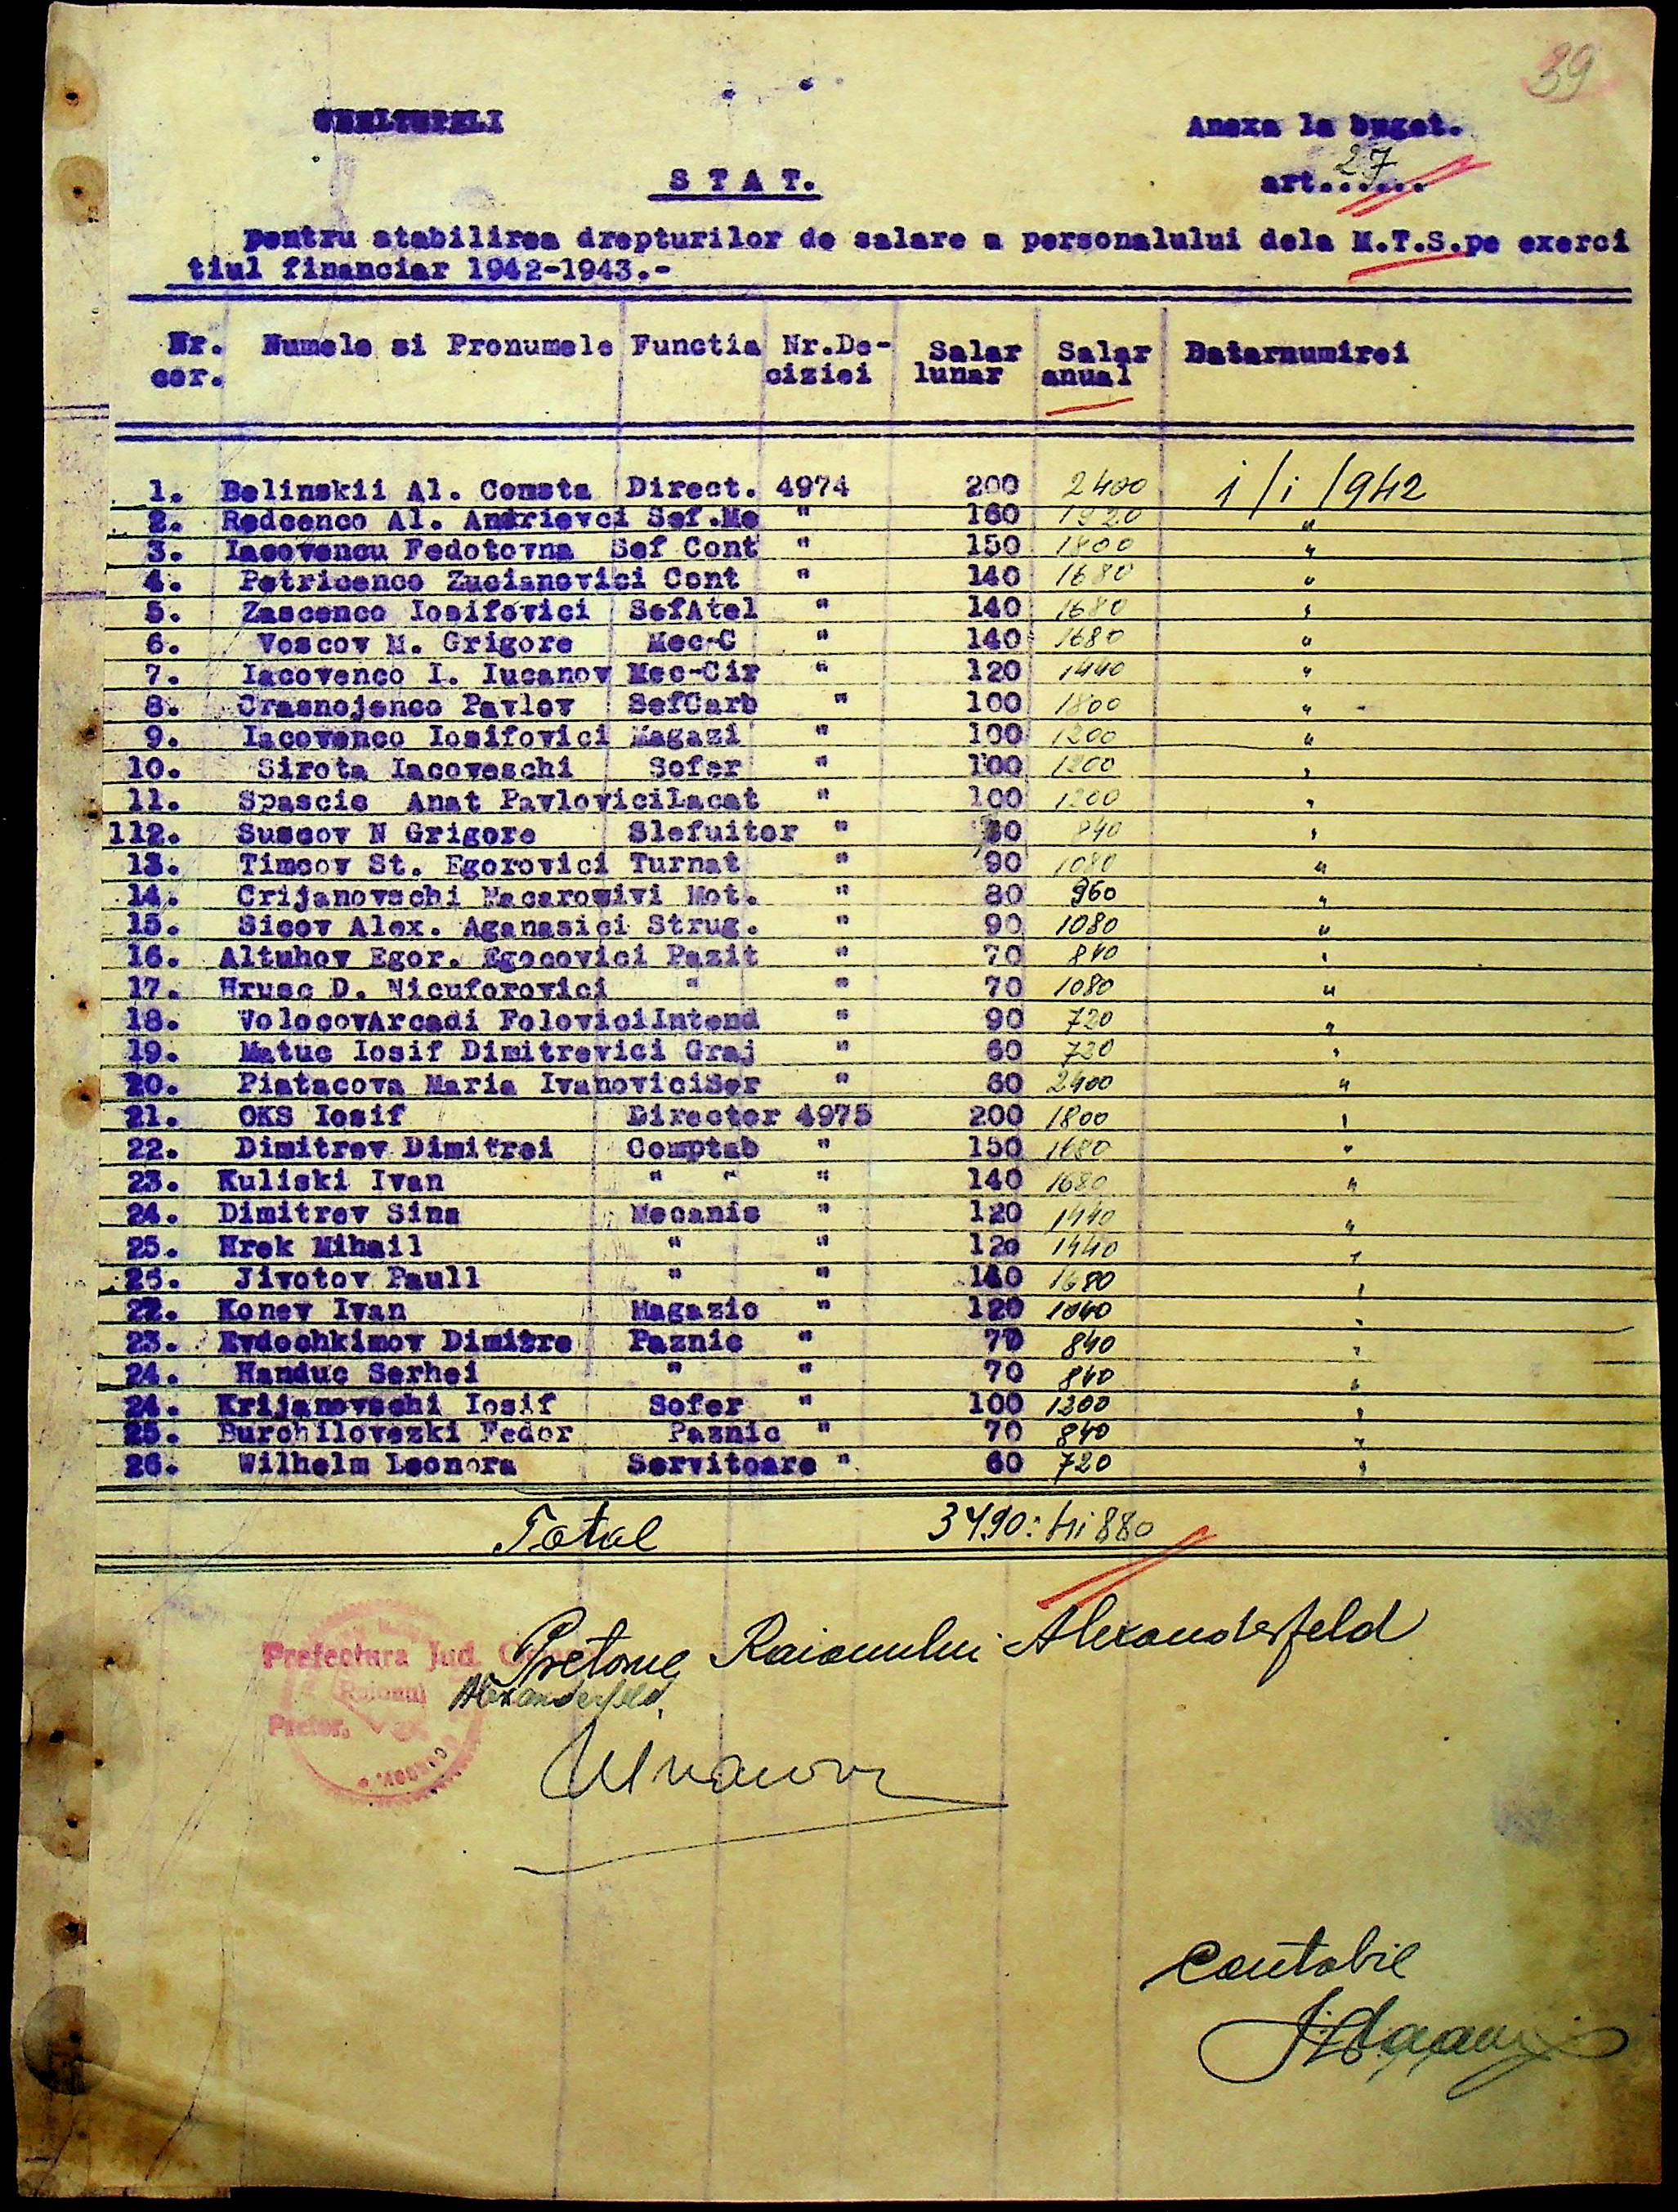 39
CHELTUELI
Anexa la buget.
art...... 27
S T A T.
pentru stabilirea drepturilor de salare a personalului dela M.T.S.pe exerci
tiul financiar 1942-1943.-
Nr. Numele si Pronumele Functia Nr.De- Salar Salar Datarnumirei
cer. ciziei lunar anual
1. Belinskii Al. Consta Direct. 4974 200 2400 1/i/942
2. Redcenco Al. Andrievci Sef.Me " 160 1920 "
3. Iacovencu Fedotovna Sef Cont " 150 1800 "
4. Petricenco Zucianovici Cont " 140 1680 "
5. Zascenco Iosifovici SefAtel " 140 1680 "
6. Voscov M. Grigore Mec-C " 140 1680 "
7. Iacovenco I. Iucanov Mec-Cir " 120 1440 "
8. Crasnojenco Pavlov SefCarb " 100 1800 "
9. Iacovenco Iosifovici Magazi " 100 1200 "
10. Sirota Iacoveschi Sofer " 100 1200 "
11. Spascie Anat PavloviciLacat " 100 1200 "
112. Suscov N Grigore Slefuitor " 840 "
13. Timcov St. Egorovici Turnat " 90 1080 "
14. Crijanovschi Macarowivi Mot. " 80 960 "
15. Sicov Alex. Aganasici Strug. " 90 1080 "
16. Altuhov Egor. Egocovici Pazit " 70 840 "
17. Hrusc D. Nicuforovici " " 70 1080 "
18. VolocovArcadi FoloviciIntend " 90 720 "
19. Matuc Iosif Dimitrevici Graj " 60 720 "
20. Piatacova Maria IvanoviciSer " 60 2400 "
21. OKS Iosif Director 4975 200 1800 "
22. Dimitrev Dimitrei Comptab " 150 1680 "
23. Kuliski Ivan " " " 140 1680 "
24. Dimitrev Sina Mecanic " 120 1440 "
25. Hrek Mihail " " 120 1440 "
25. Jivotov Paull " " 140 1680 "
22. Konev Ivan Magazic " 120 1040 "
23. Evdochkimov Dimitre Paznic " 70 840 "
24. Handuc Serhei " " 70 840 "
24. Krijanovschi Iosif Sofer " 100 1200 "
25. Burchilovezki Fedor Paznic " 70 840 "
26. Wilhelm Leonora Servitoare " 60 720 "
Total 3490: 41880
Pretorul Raionului Alexanderfeld
Prefectura Jud.
Raionul Alexanderfeld
Pretor.
Contabil